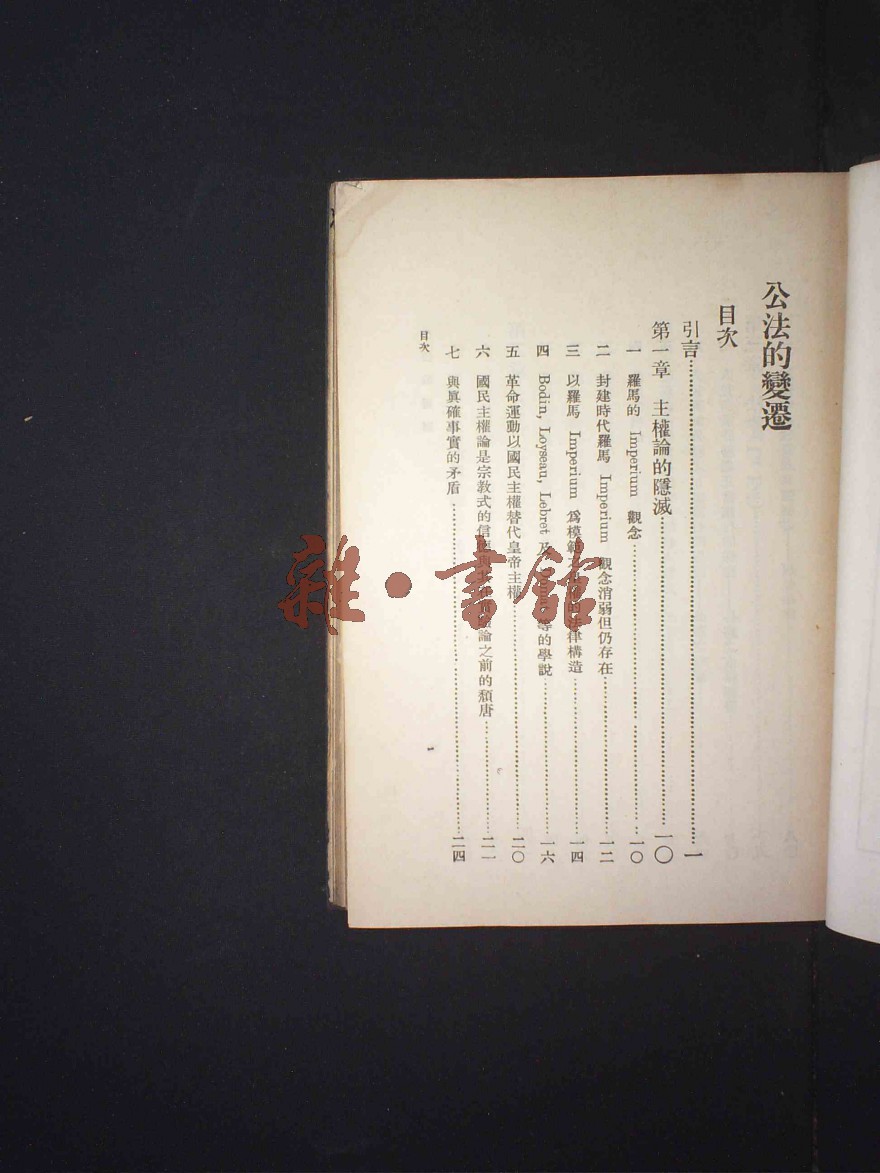 公法的變遷
目次
引言……一
第一章 主權論的隱滅……一〇
一 羅馬的 Imperium 觀念……一〇
二 封建時代羅馬 Imperium 觀念消弱但仍存在……一二
三 以羅馬 Imperium 爲模範 的法律構造……一四
四 Bodin, Loyseau, Lebret 及 等的學說……一六
五 革命運動以國民主權替代皇帝主權……二〇
六 國民主權論是宗教式的信 論之前的頽唐……二一
七 與眞確事實的矛盾……二四
目次
一
雜·書館